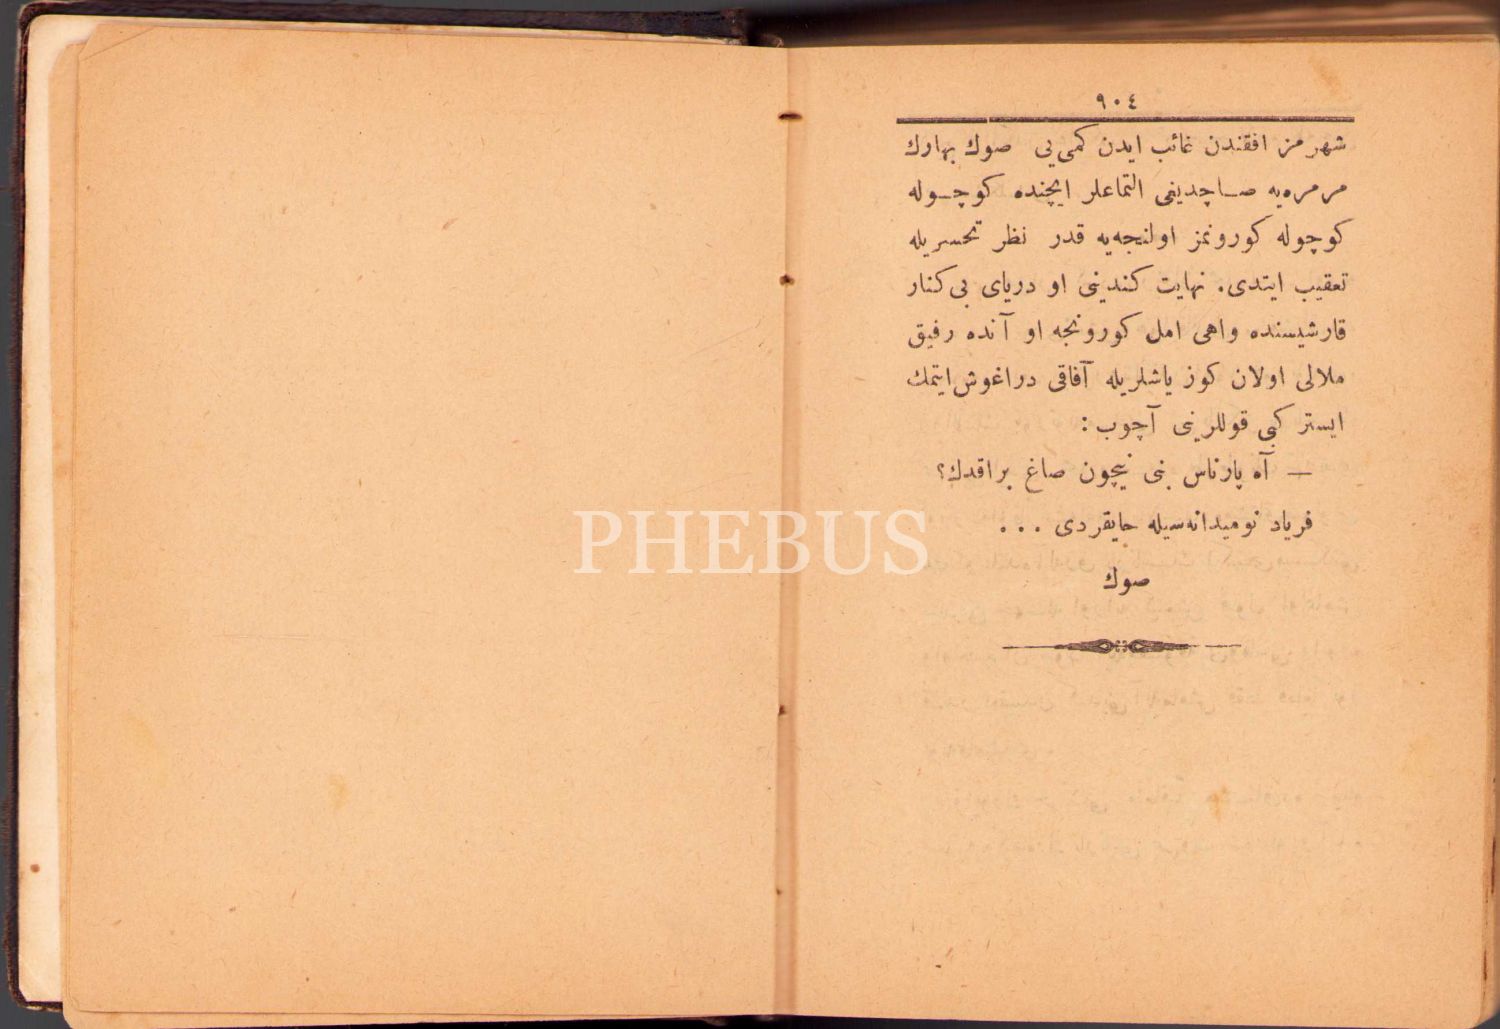 ٩٠٤
شهرمز افقندن غائب ايدن كمی‌يی صوك بهارك
مرمره‌يه صاچديغی التماعلر ايچنده كوچوله
كوچوله كورونمز اولنجه‌يه قدر نظر تحسريله
تعقيب ايتدی. نهايت كندينی او دريای بی‌كنار
قارشيسنده واهی امل كورونجه او آنده رفيق
ملالی اولان كوز ياشلريله آفاقی دراغوش ايتمك
ايستر كبی قوللرينی آچوب:
— آه پارناس بنی نيچون صاغ براقدك؟
فرياد نوميدانه‌سيله حايقردی ...
صوك
PHEBUS